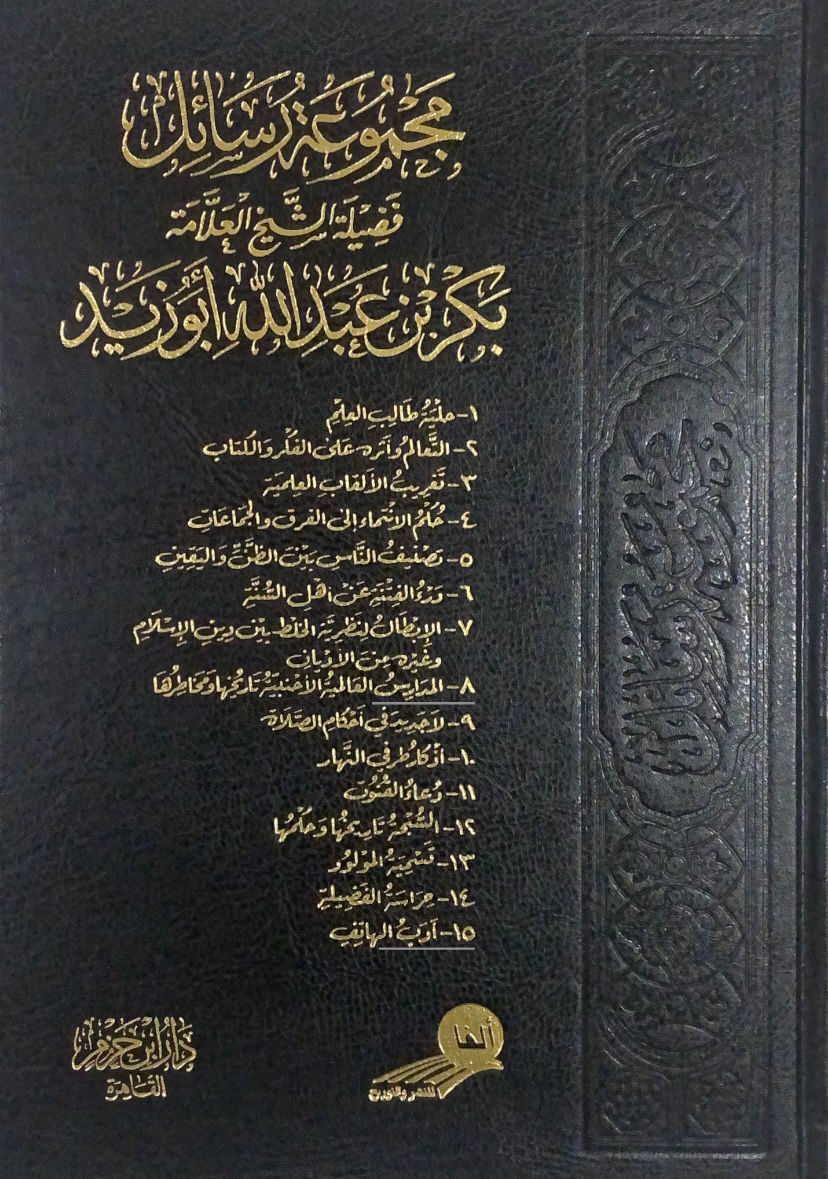 مَجْمُوعَةُ رَسَائِل
فَضِيْلَة الشَّيْخ العَلَّامَة
بَكْر بْن عَبْدِ اللَّهِ أَبُو زَيْد
١- حِلْيَةُ طَالِبِ العِلْمِ
٢- التَّعَالُمُ وَأَثَرُهُ عَلَى الفِكْرِ وَالكِتَابِ
٣- تَغْرِيبُ الأَلْقَابِ العِلْمِيَّةِ
٤- حُكْمُ الاِنْتِمَاءِ إِلَى الفِرَقِ وَالجَمَاعَاتِ
٥- تَصْنِيفُ النَّاسِ بَيْنَ الظَّنِّ وَاليَقِينِ
٦- دَرْءُ الفِتْنَةِ عَنْ أَهْلِ السُّنَّةِ
٧- الإِبْطَالُ لِنَظَرِيَّةِ الخَلْطِ بَيْنَ دِينِ الإِسْلَامِ
وَغَيْرِهِ مِنَ الأَدْيَانِ
٨- المَدَارِسُ العَالَمِيَّةُ الأَجْنَبِيَّةُ تَارِيخُهَا وَمَخَاطِرُهَا
٩- لَا جَدِيدَ فِي أَحْكَامِ الصَّلَاةِ
١٠- أَذْكَارُ طَرَفَيِ النَّهَارِ
١١- دُعَاءُ القُنُوتِ
١٢- السُّبْحَةُ تَارِيخُهَا وَحُكْمُهَا
١٣- تَسْمِيَةُ المَوْلُودِ
١٤- حِرَاسَةُ الفَضِيلَةِ
١٥- أَدَبُ الهَاتِفِ
ألفا
للنشر والتوزيع
دَارُ ابْن حَزْم
القَاهِرَة
مجموعة رسائل